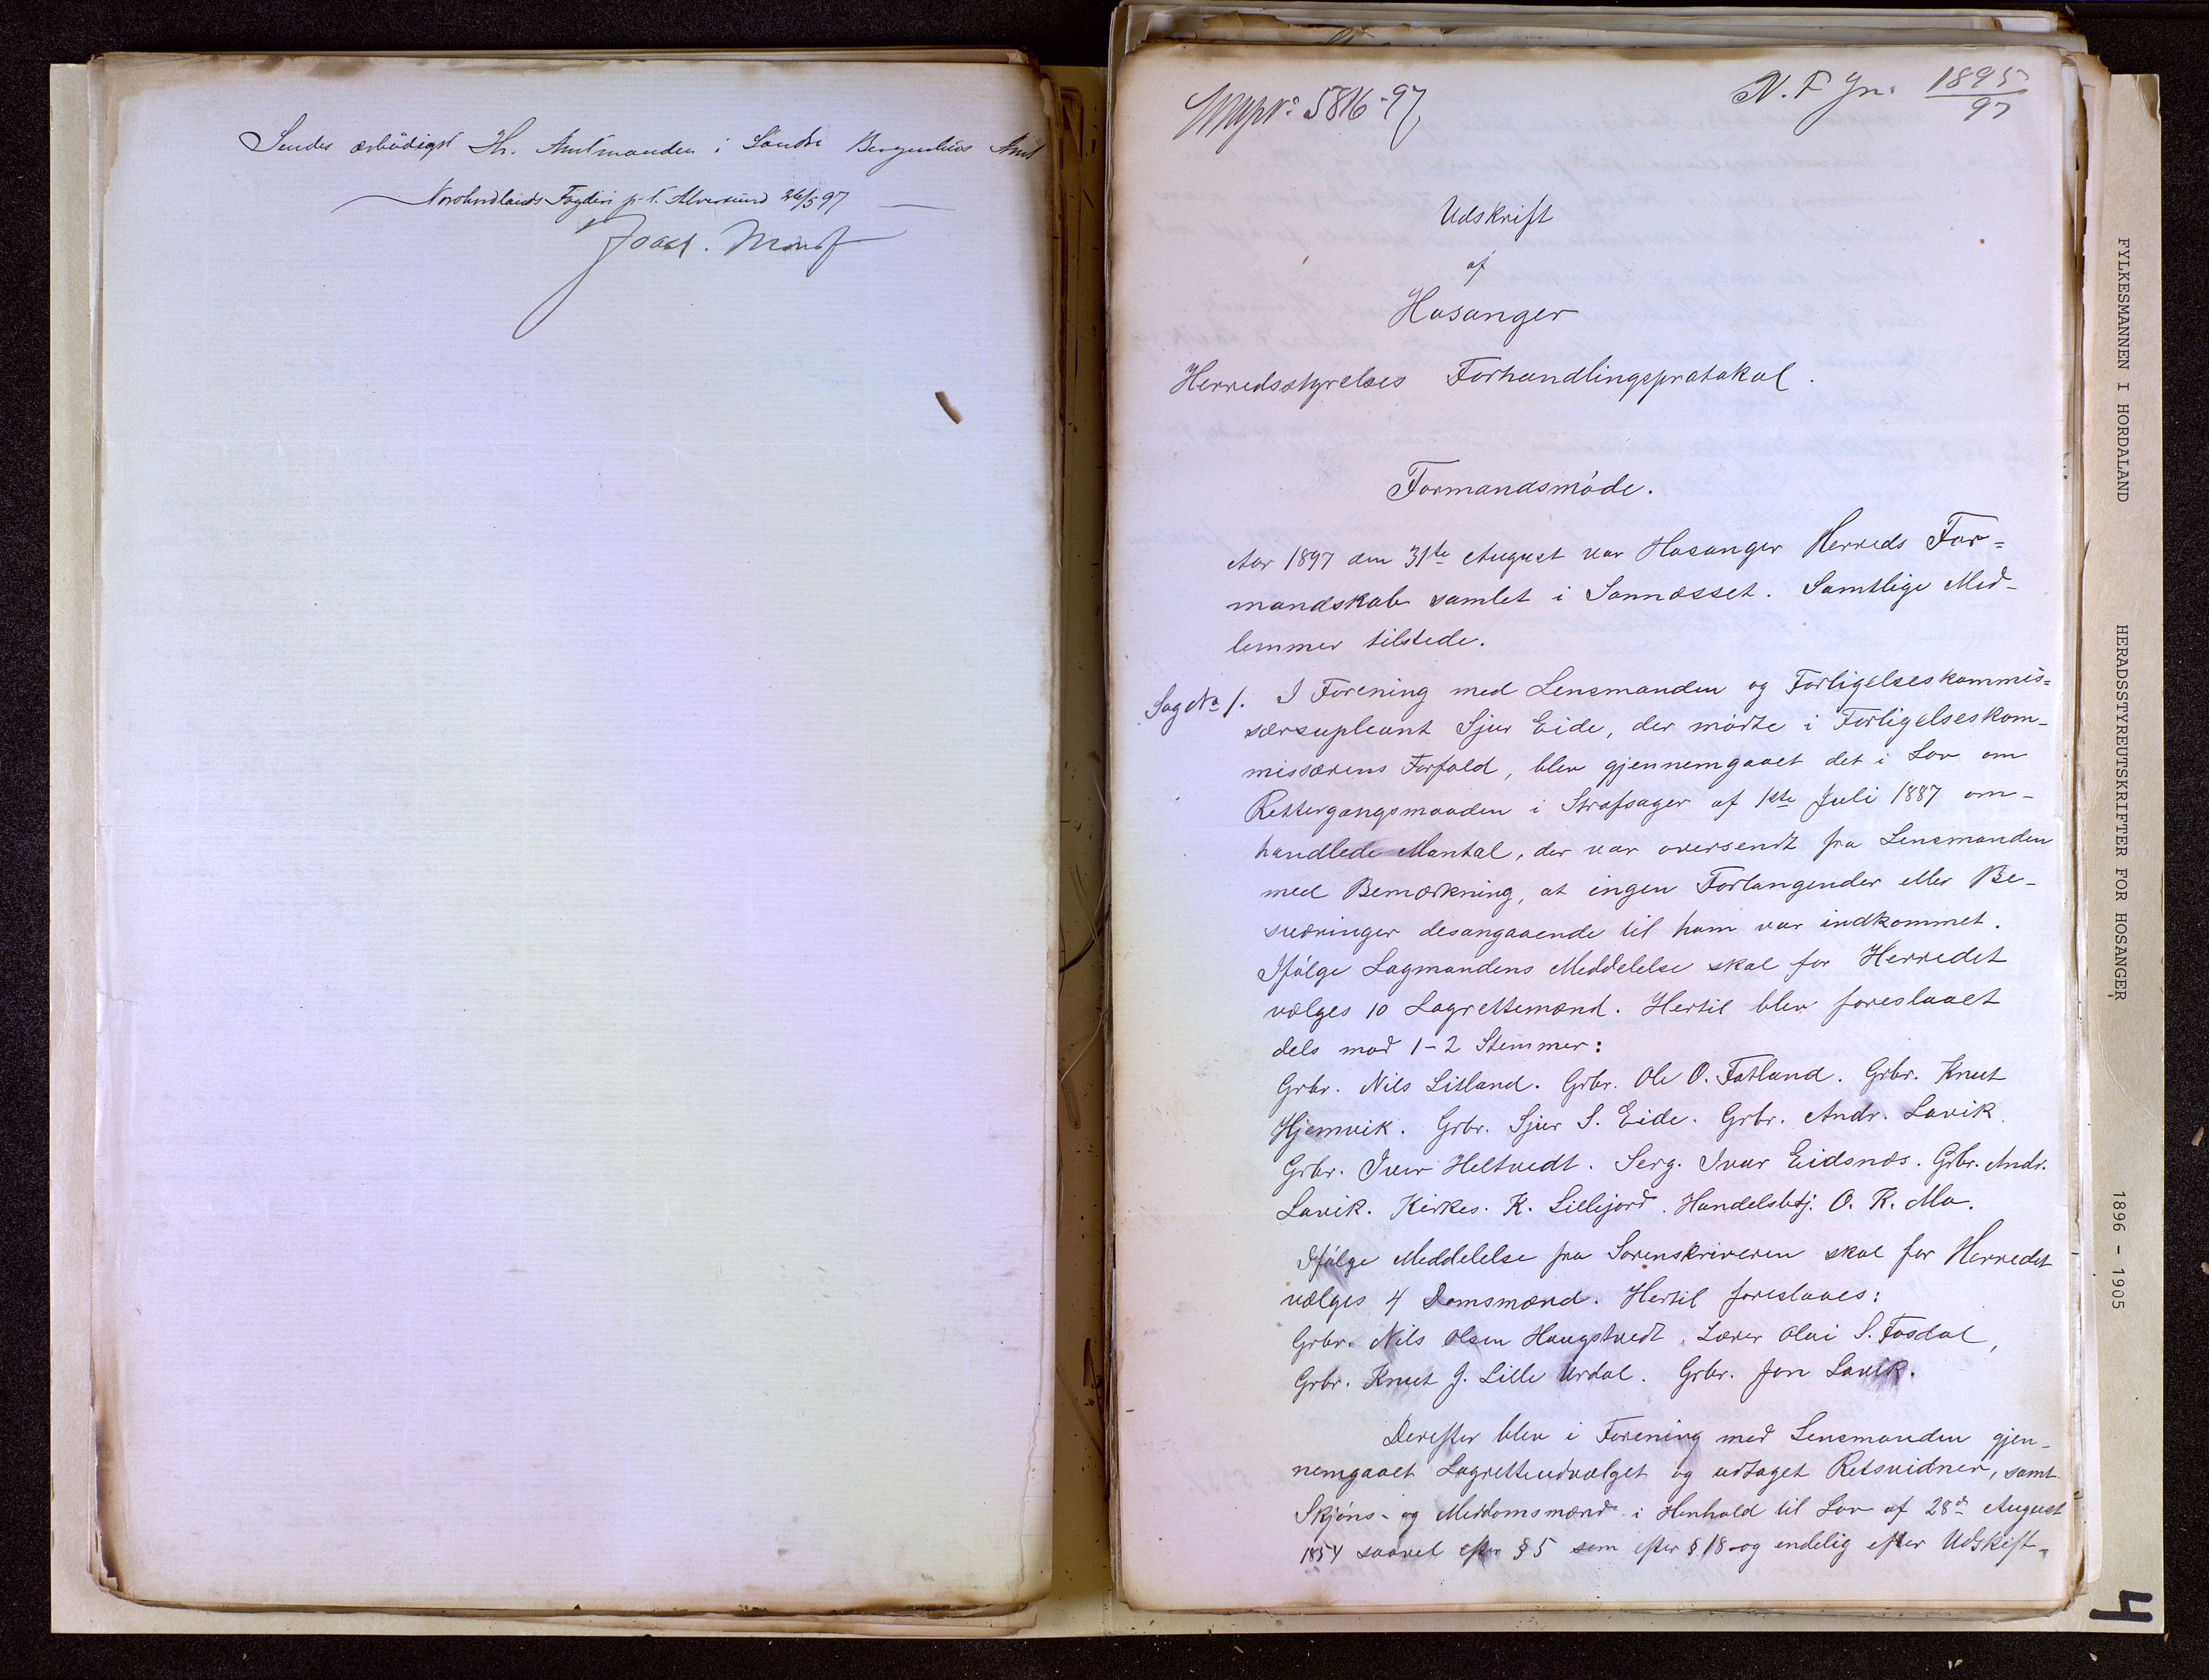 Sendes ærbödigst Hr. Amtmanden i Söndre Bergenhus Amt
Nordhordlands Fogderi p. t. Alversund 26/5 97
N. F. Jn. 1895/97
No 5816-97
Udskrift
af
Hosanger
Herredsstyrelses Forhandlingsprotokol.
Formandsmöde.
Aar 1897 den 31te August var Hosanger Herreds For=
mandskab samlet i Sonnæsset. Samtlige Med-
lemmer tilstede.
Sag No 1. I Forening med Lensmanden og Forligelseskommis=
særsupleant Sjur Eide, der mödte i Forligelseskom-
missærens Forfald, blev gjennemgaaet det i Lov om
Rettergangsmaaden i Strafsager af 1ste Juli 1887 om-
handlede Mantal, der var oversendt fra Lensmanden
med Bemærkning, at ingen Forlangender eller Be-
sværinger desangaaende til ham var indkommet.
Ifölge Lagmandens Meddelelse skal for Herredet
vælges 10 Lagrettemænd. Hertil blev foreslaaet
dels mod 1-2 Stemmer:
Grbr. Nils Litland. Grbr. Ole O. Fatland. Grbr. Knut
Hjemvik. Grbr. Sjur S. Eide. Grbr. Andr. Lavik.
Grbr. Iver Heltvedt. Serg. Ivar Eidsnæs. Grbr. Andr.
Lavik. Kirkes. K. Lillejord. Handelsbtj. O. K. Mo.
Ifölge Meddelelse fra Sorenskriveren skal for Herredet
vælges 4 Domsmænd. Hertil foreslaaes:
Grbr. Nils Olsen Haugstvedt, Lærer Olai S. Fosdal,
Grbr. Knut J. Lille Urdal. Grbr. Jon Lavik.
Derefter blev i Forening med Lensmanden gjen-
nemgaaet Lagretteudvalget og udtaget Retsvidner, samt
Skjöns- og Meddomsmænd i Henhold til Lov af 28de August
1854 saavel efter § 5 som efter § 18 og endelig efter Udskift-
FYLKESMANNEN I HORDALAND
HERADSSTYREUTSKRIFTER FOR HOSANGER
1896 - 1905
4